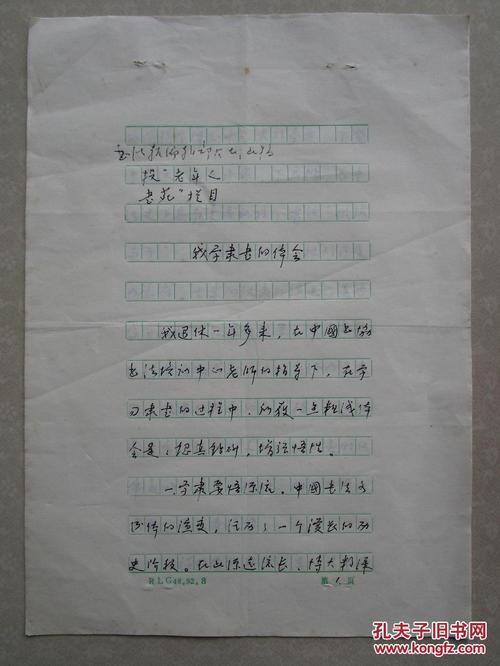 投"老年人
书苑"栏目
我学隶书的体会
我退休一年多来，在中国书协
书法培训中心老师的指导下，在学
习隶书的过程中，初获一点粗浅体
会是：探真钻研，增强悟性。
一、学隶要悟源流。中国书法各
书体的演变，经历了一个漫长的历
史阶段。在此源远流长，博大精深
RLG48,92,8
第 1 页
孔夫子旧书网
www.kongfz.com